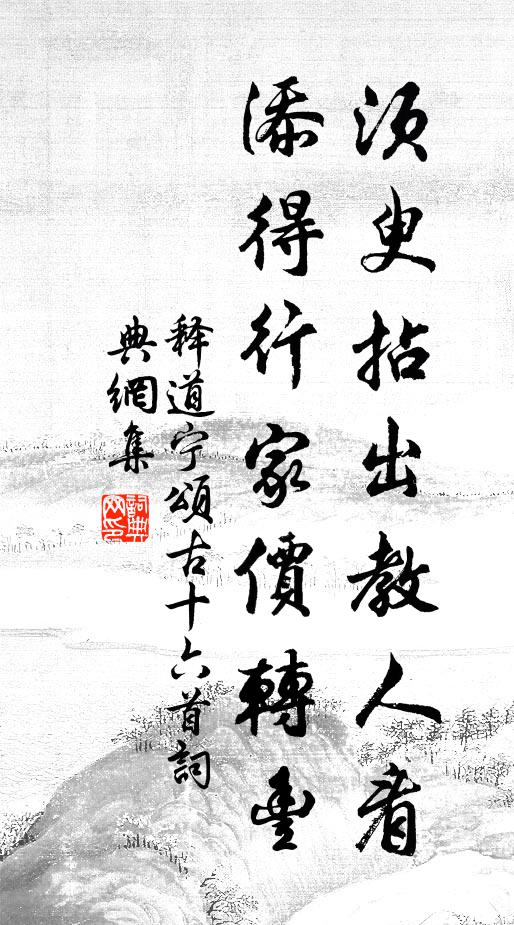 須臾拈出教人看
添得行家價轉豊
释道宁頌古十六首詞
典網集
詞典